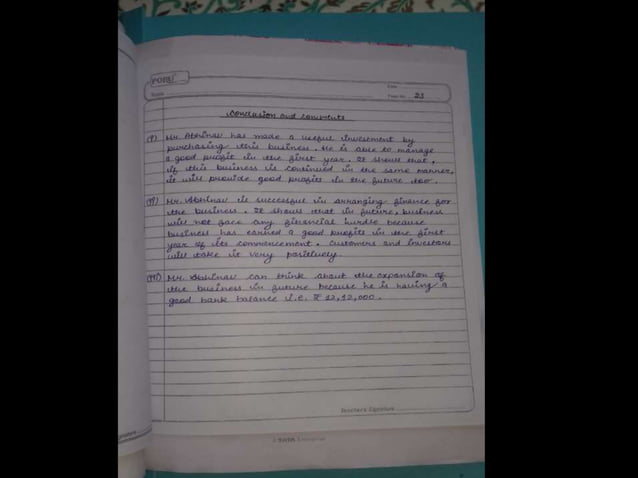 FORU
Date
Page No. 23
Conclusion and comments
(i) Mr. Abhinav has made a useful investment by
purchasing this business. He is able to manage
a good profit in the first year. It shows that,
if this business is continued in the same manner,
it will provide good profits in the future too.
(ii) Mr. Abhinav is successful in arranging finance for
the business. It shows that in future, business
will not face any financial hurdle because
business has earned a good profits in the first
year of its commencement. Customers and investors
will take it very positively.
(iii) Mr. Abhinav can think about the expansion of
the business in future because he is having a
good bank balance i.e. ₹ 12,12,000.
Teacher's Signature